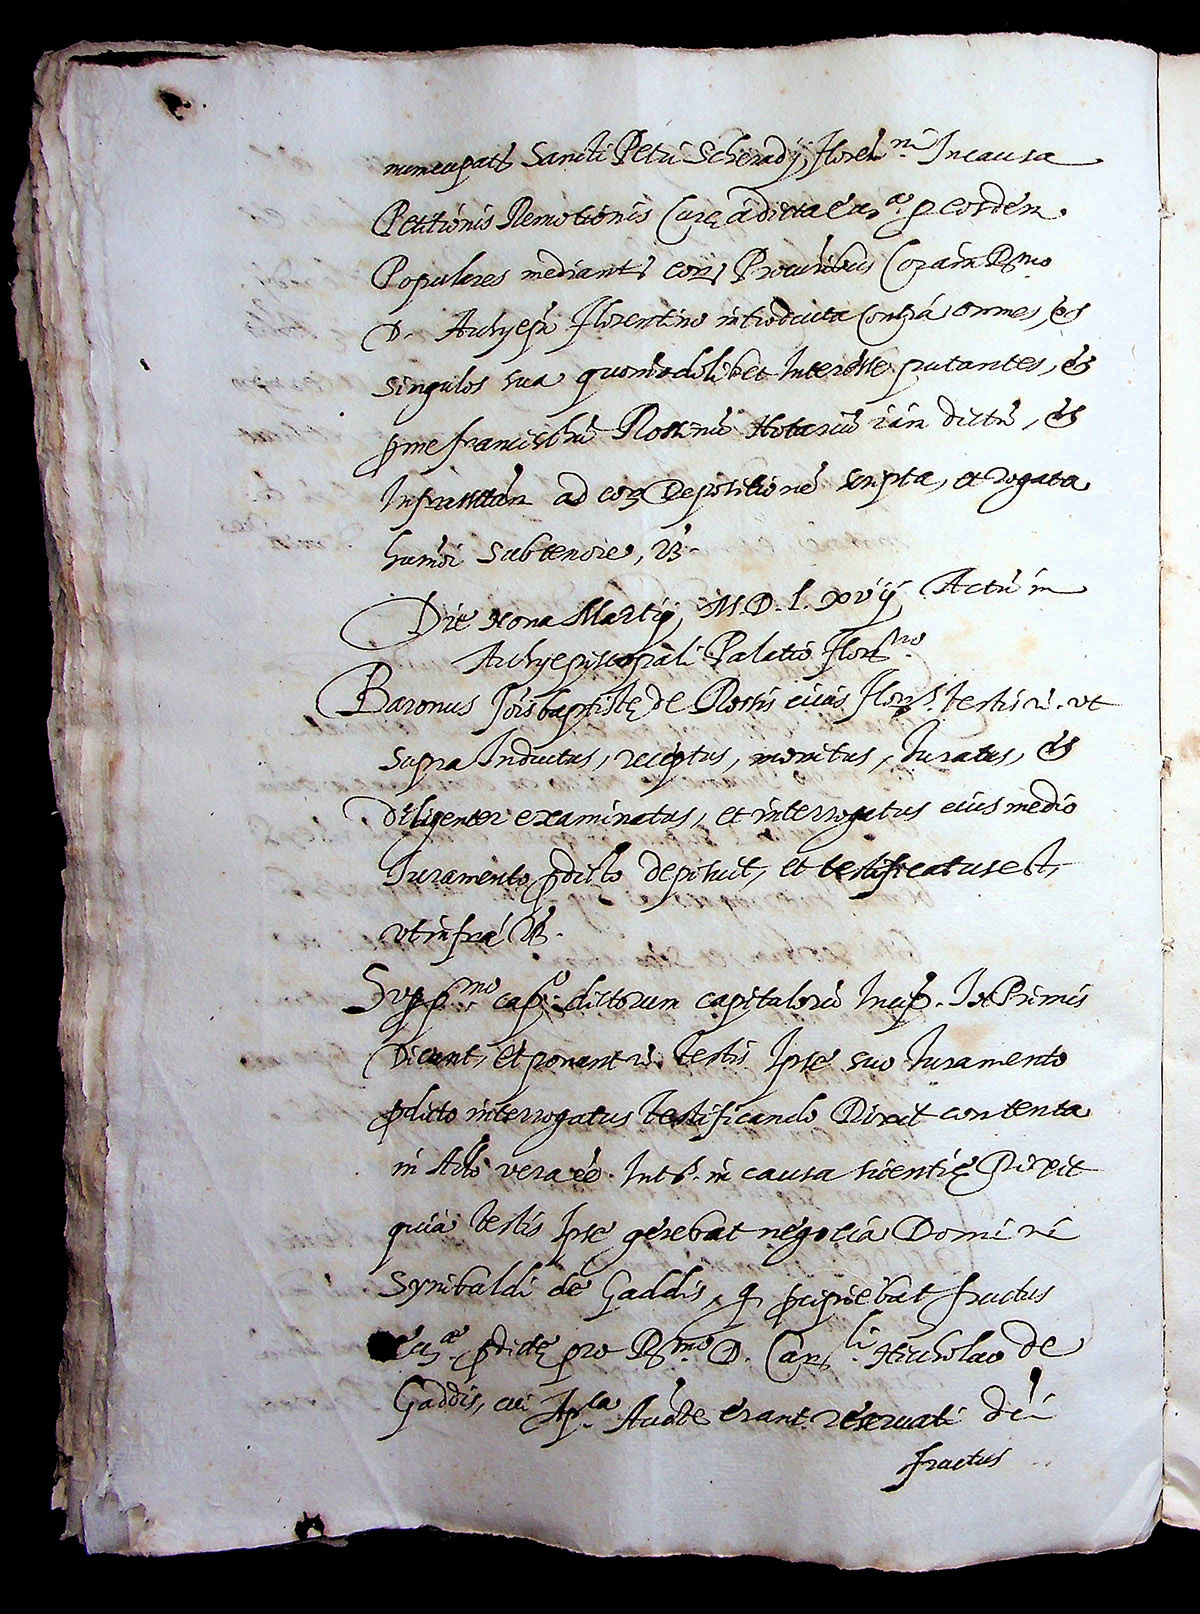 nuncupatę Sancti Petri Scheradij, Floren.ni In causa
Petitionis Remotionis Curę à dicta p eosdem
Populares mediantę Coram Rmo
D. Archyepō Florentino introducta Contrà omnes, et
singulos sua quomodolibet Interesse putantes, et
p me Notariū iam dictū, et
Infrascttam ad eoȝ Depositionē scripta, et rogata
humōi subtenore, Vȝ.
Die Nona Martij M.D.L.xvij Actū in
Archyepiscopali Palatio Floren.no
Baronus Joisbaptistę de Rossis civis Floren. testis ut
supra Inductus, receptus, monitus, Iuratus, et
Diligenter examinatus, et interrogatus eius medio
Iuramento pdicto deposuit, et testificatus est,
ut infra Vȝ.
Sup pmo capo. dictorum capitulorū Incip. In Primis
Dicunt, et ponunt Testis Ipse suo Iuramento
pdicto interrogatus testificando Dixit contenta
in vera eē. Int.s. in causa scientię Dixit
quia testis Ipse gerebat negocia Domini
Synibaldi de Gaddis, q pcipiebat fructus
pdictę pro Rmo D. Carli Nicholao de
Gaddis, cui Apla Aucte erant reservati dci
fructus